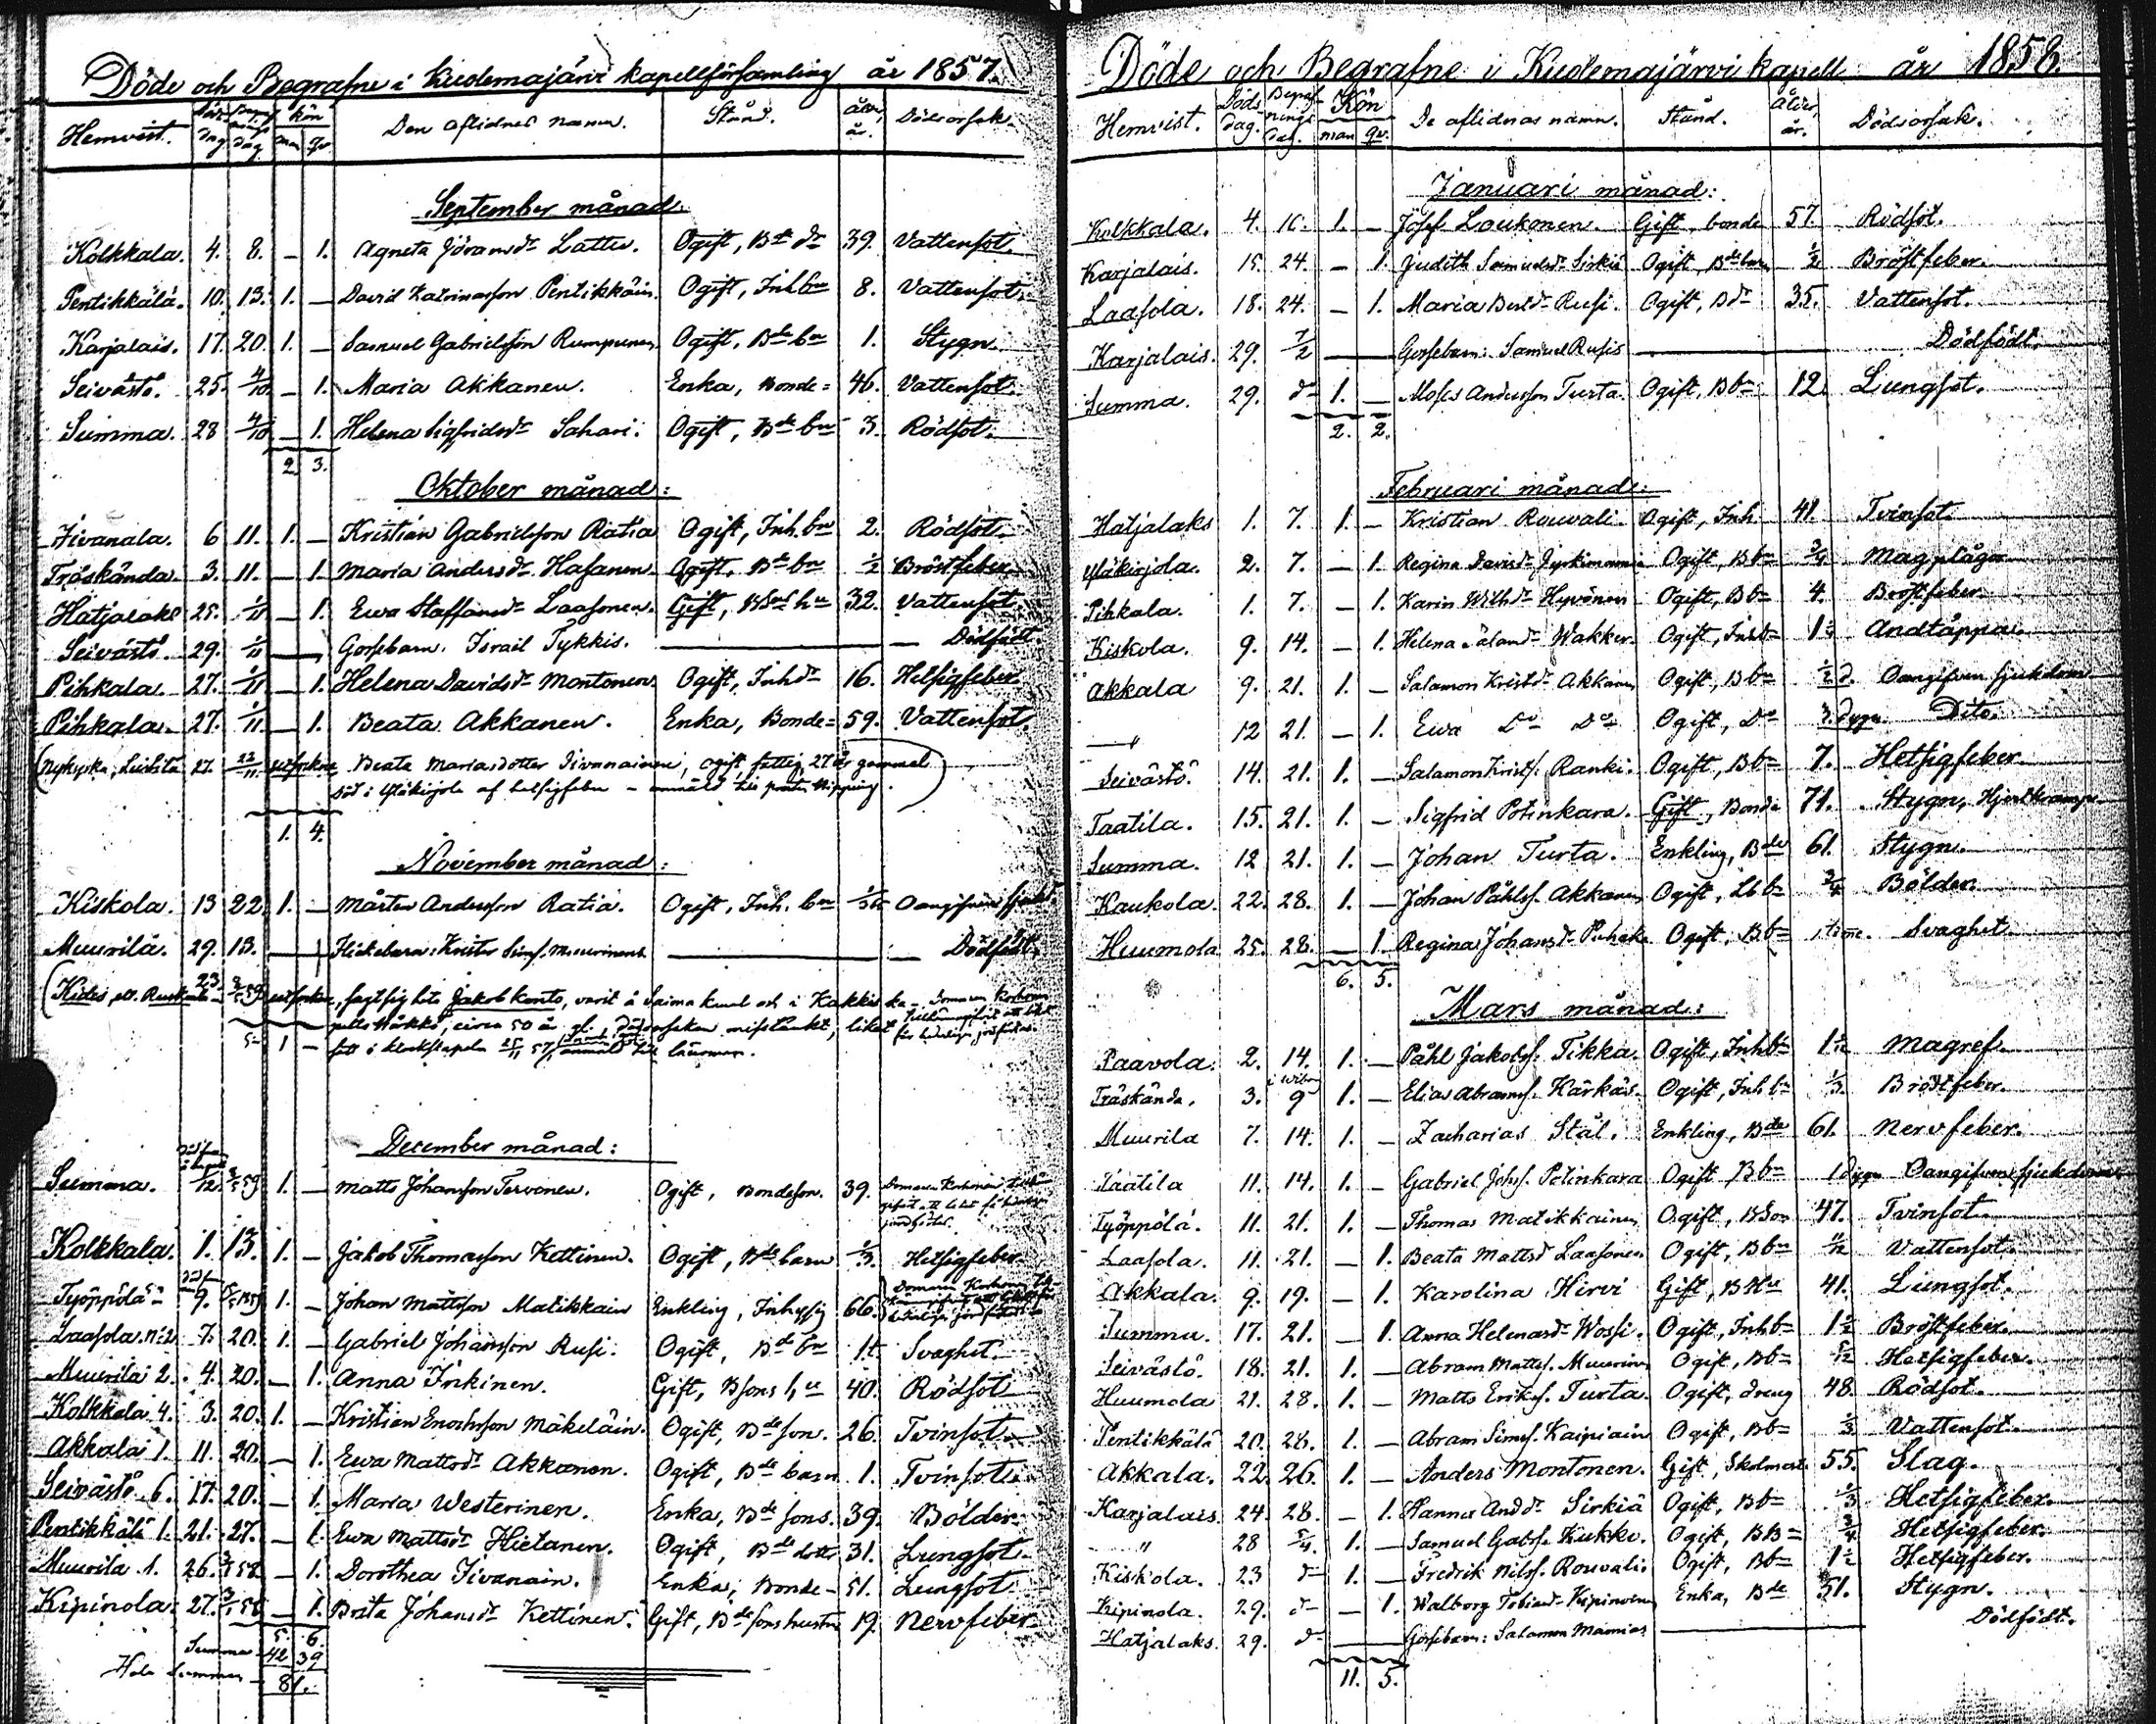 Döde och Begrafne i Kuolemajärvi kapellförsamling år 1857.
Hemvist. Döds dag Begrafnings dag Kön man qv Den aflidnes namn. Stånd. Ålder, år. Dödsorsak.
September månad:
Kolkkala. 4. 8. – 1. Agneta Jöransdr Lattu. Ogift, Bde dr 39. Vattensot.
Pentikkälä. 10. 13. 1. – David Katrinasson Pentikkäin. Ogift, Inh bn 8. Vattensot.
Karjalais. 17. 20. 1. – Samuel Gabrielsson Rumpunen Ogift, Bde bn 1. Stygn.
Seivästö. 25. 4/10. – 1. Maria Akkanen. Enka, Bonde= 46. Vattensot.
Summa. 28 4/10 – 1. Helena Sigfridsdr Sahari. Ogift, Bde bn 3. Rödsot.
2. 3.
Oktober månad:
Iivanala. 6 11. 1. – Kristian Gabrielsson Ratia Ogift, Inh. bn 2. Rödsot.
Träskända. 3. 11. – 1. Maria Andersdr Hasanen Ogift, Bde bn ½ Bröstfeber.
Hatjalaks 25. 1/11 – 1. Ewa Staffansdr Laasonen. Gift, hu 32. Vattensot.
Seivästö. 29. 1/11 — Gossebarn. Israil Tykkis. — Dödfödt.
Pihkala. 27. 1/11 – 1. Helena Davidsdr Montonen. Ogift, Inh dr 16. Hetsigfeber.
Pihkala. 27. 1/11 – 1. Beata Akkanen. Enka, Bonde= 59. Vattensot.
(Nykyrka, 27. 22/11 Beata Mariasdotter Iivanainen, ogift fattig 27 år gammal
död i Yläkirjola af hetsigfeber – anmäld
1. 4.
November månad:
Kiskola. 13 22. 1. – Mårten Andersson Ratia. Ogift, Inh. bn Oangifven sjukd.
Muurila. 29. 13. — Flickebarn: Krister Simss. Muurinens — Dödfödt.
(Kides, 23 Jakob Konto, varit å Saima kanal och i
circa 50 år gl. liket
i klockstapeln 25/11 57, anmäld till länsman.
5– 1 –
December månad:
Summa. 5/12. 1. – Matts Johansson Tervonen. Ogift, Bondeson. 39.
Kolkkala. 1. 13. 1. – Jakob Thomasson Kettinen. Ogift, Bde barn 1/3. Hetsigfeber.
Työppölä 9. 1. – Johan Mattsson Matikkain Enkling, Inhysg 66.
Laasola. No 2 7. 20. 1. – Gabriel Johansson Rusi. Ogift, Bde bn 1t. Svaghet.
Muurila 2. 4. 20. – 1. Anna Inkinen. Gift, Bsons hu 40. Rödsot
Kolkkala 4. 3. 20. 1. – Kristian Enochsson Mäkeläin. Ogift, Bde son. 26. Tvinsot.
Akkala 1. 11. 20. – 1. Ewa Mattsdr Akkanen. Ogift, Bde barn 1. Tvinsot.
Seivästö 6. 17. 20. – 1. Maria Westerinen. Enka, Bde sons. 39. Bölder.
Pentikkälä 1. 21. 27. – 1. Ewa Mattsdr Hietanen. Ogift, Bde dotter 31. Lungsot.
Muurila 1. 26. 3/1 58 – 1. Dorothea Iivanain. Enka, Bonde– 51. Lungsot.
Kipinola. 27. 3/1 58 – 1. Brita Johansdr Kettinen. Gift, Bde sons hustru 19. Nervfeber.
5. 6.
Summa 42 39
Hela Summan 81.
Döde och Begrafne i Kuolemajärvi kapell år 1858.
Hemvist. Döds dag. Begrafnings dag. Kön man qv. De aflidnas namn. Stånd. Ålder, år. Dödsorsak.
Januari månad:
Kolkkala. 4. 16. 1. – Josef Loukonen. Gift, bonde 57. Rödsot.
Karjalais. 15. 24. – 1. Judith Samuelsdr Sirkiä Ogift, Bde barn ½ Bröstfeber.
Laasola. 18. 24. – 1. Maria Rusi. Ogift, B dr 35. Vattensot.
Karjalais. 29. 7/2 — Gossebarn: Samuel Rusis — Dödfödt.
Summa. 29. do 1. – Moses Andersson Turta. Ogift, B bn 12. Lungsot.
2. 2.
Februari månad:
Hatjalaks 1. 7. 1. – Kristian Rouvali. Ogift, Inh. 41. Tvinsot.
Yläkirjola. 2. 7. – 1. Regina Davidsdr Ogift, B bn ¾ Magplågor
Pihkala. 1. 7. – 1. Karin Wilhdr Hyvönen Ogift, B bn 4. Bröstfeber.
Kiskola. 9. 14. – 1. Helena Wakker. Ogift, Inh bn 1½ Andtäppa.
Akkala 9. 21. 1. – Salamon Akkanen Ogift, B bn ½ d. Oangifven sjukdom
—" 12 21. – 1. Ewa Do Do Ogift, Do 3. dygn Dito.
Seivästö. 14. 21. 1. – Salamon Krists. Ranki. Ogift, B bn 7. Hetsigfeber.
Taatila. 15. 21. 1. – Sigfrid Potinkara. Gift, Bonde 71. Stygn, Hjertkramp
Summa. 12 21. 1. – Johan Turta. Enkling, Bde 61. Stygn.
Kaukola. 22. 28. 1. – Johan Påhlss. Akkanen Ogift, bn ¾ Bölder.
Huumola 25. 28. – 1. Regina Johansdr Puhak. Ogift, B bn 1 time. Svaghet.
6. 5.
Mars månad:
Paavola. 2. 14. 1. – Påhl Jakobss. Tikka. Ogift, Inh bn 1 1/12 Magref.
Träskända. 3. i Wiborg 9 1. – Elias Abramss. Kärkäs. Ogift, Inh bn 1/3. Bröstfeber.
Muurila 7. 14. 1. – Zacharias Stål. Enkling, Bde 61. Nervfeber.
Taatila 11. 14. 1. – Gabriel Johss. Potinkara Ogift B bn 1 dygn Oangifven sjukdom
Työppölä. 11. 21. 1. – Thomas Matikkainen Ogift, Bson 47. Tvinsot.
Laasola. 11. 21. – 1. Beata Mattsd Laasonen Ogift, B bn 11/12 Vattensot.
Akkala. 9. 19. – 1. Karolina Hirvi Gift, B Hu 41. Lungsot.
Summa. 17. 21. – 1. Anna Helenasdr Wossi. Ogift, Inh bn 1½ Bröstfeber.
Seivästö. 18. 21. 1. – Abram Mattss. Muurinen Ogift, B bn 5/12 Hetsigfeber.
Huumola 21. 28. 1. – Matts Erikss. Turta. Ogift, dreng 48. Rödsot.
Pentikkälä 20. 28. 1. – Abram Simss. Kaipiain Ogift, B bn Vattensot.
Akkala. 22. 26. 1. – Anders Montonen. Gift, Skolmäst. 55. Slag.
Karjalais. 24. 28. – 1. Hanna Anddr Sirkiä Ogift, B bn 1/3 Hetsigfeber.
" 28 5/4. 1. – Samuel Gabss. Kukko. Ogift, B B= ¾ Hetsigfeber.
Kiskola. 23 do 1. – Fredrik Nilss. Rouvali. Ogift, B bn 1½ Hetsigfeber.
Kipinola. 29. do – 1. Walborg Tobiasdr Kipinoinen Enka, Bde 51. Stygn.
Hatjalaks. 29. do — Gossebarn: Salamon Mannias — Dödfödt.
11. 5.